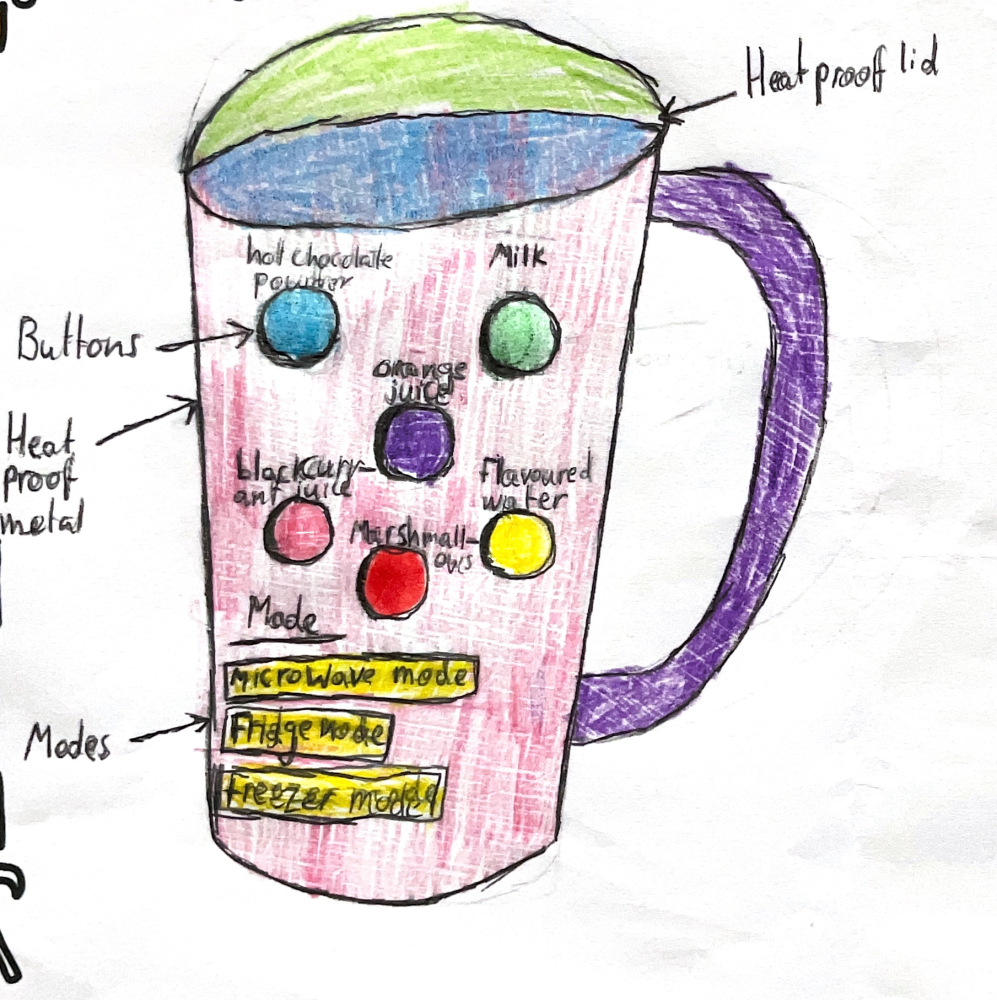 Heatproof lid
hot chocolate
powder
Milk
Buttons
orange
juice
Heat
proof
metal
blackcurr-
ant juice
flavoured
water
Marshmall-
ows
Mode
Microwave mode
Modes
Fridge mode
freezer mode